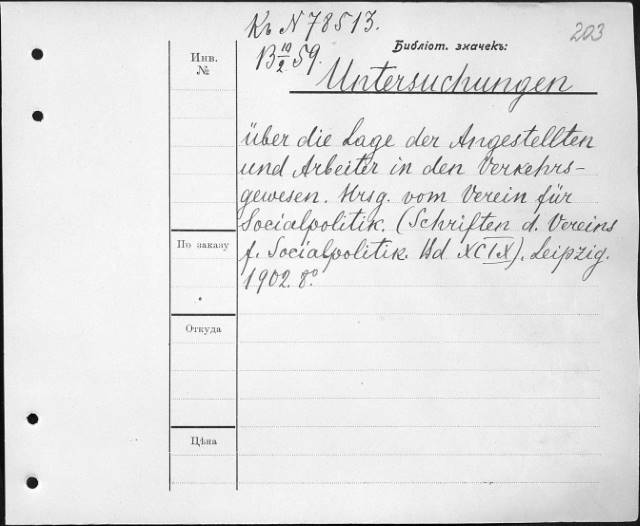 Къ N 78513.
203
Библіот. значекъ:
B 10/2 59.
Инв.
№
Untersuchungen
über die Lage der Angestellten
und Arbeiter in den Verkehrs-
gewesen. Hrsg. vom Verein für
Socialpolitik. (Schriften d. Vereins
По заказу
f. Socialpolitik. Bd XCIX). Leipzig.
1902. 8°.
Откуда
Цѣна